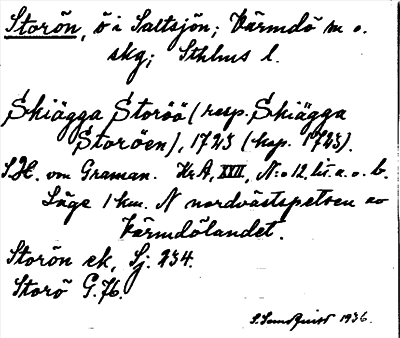 Storön, ö i Saltsjön; Värmdö m o.
skg; Sthlms l.
Skiägga Storöö (resp. Skiägga
Storöen), 1723 (kop. 1723).
S.H. om Graman. Kr A, XVII, N:o 12, lit. a. o. b.
Läge 1 km. N nordvästspetsen av
Värmdölandet.
Storön ek, Sj. 234.
Storö G.76.
S. Sundquist 1936.